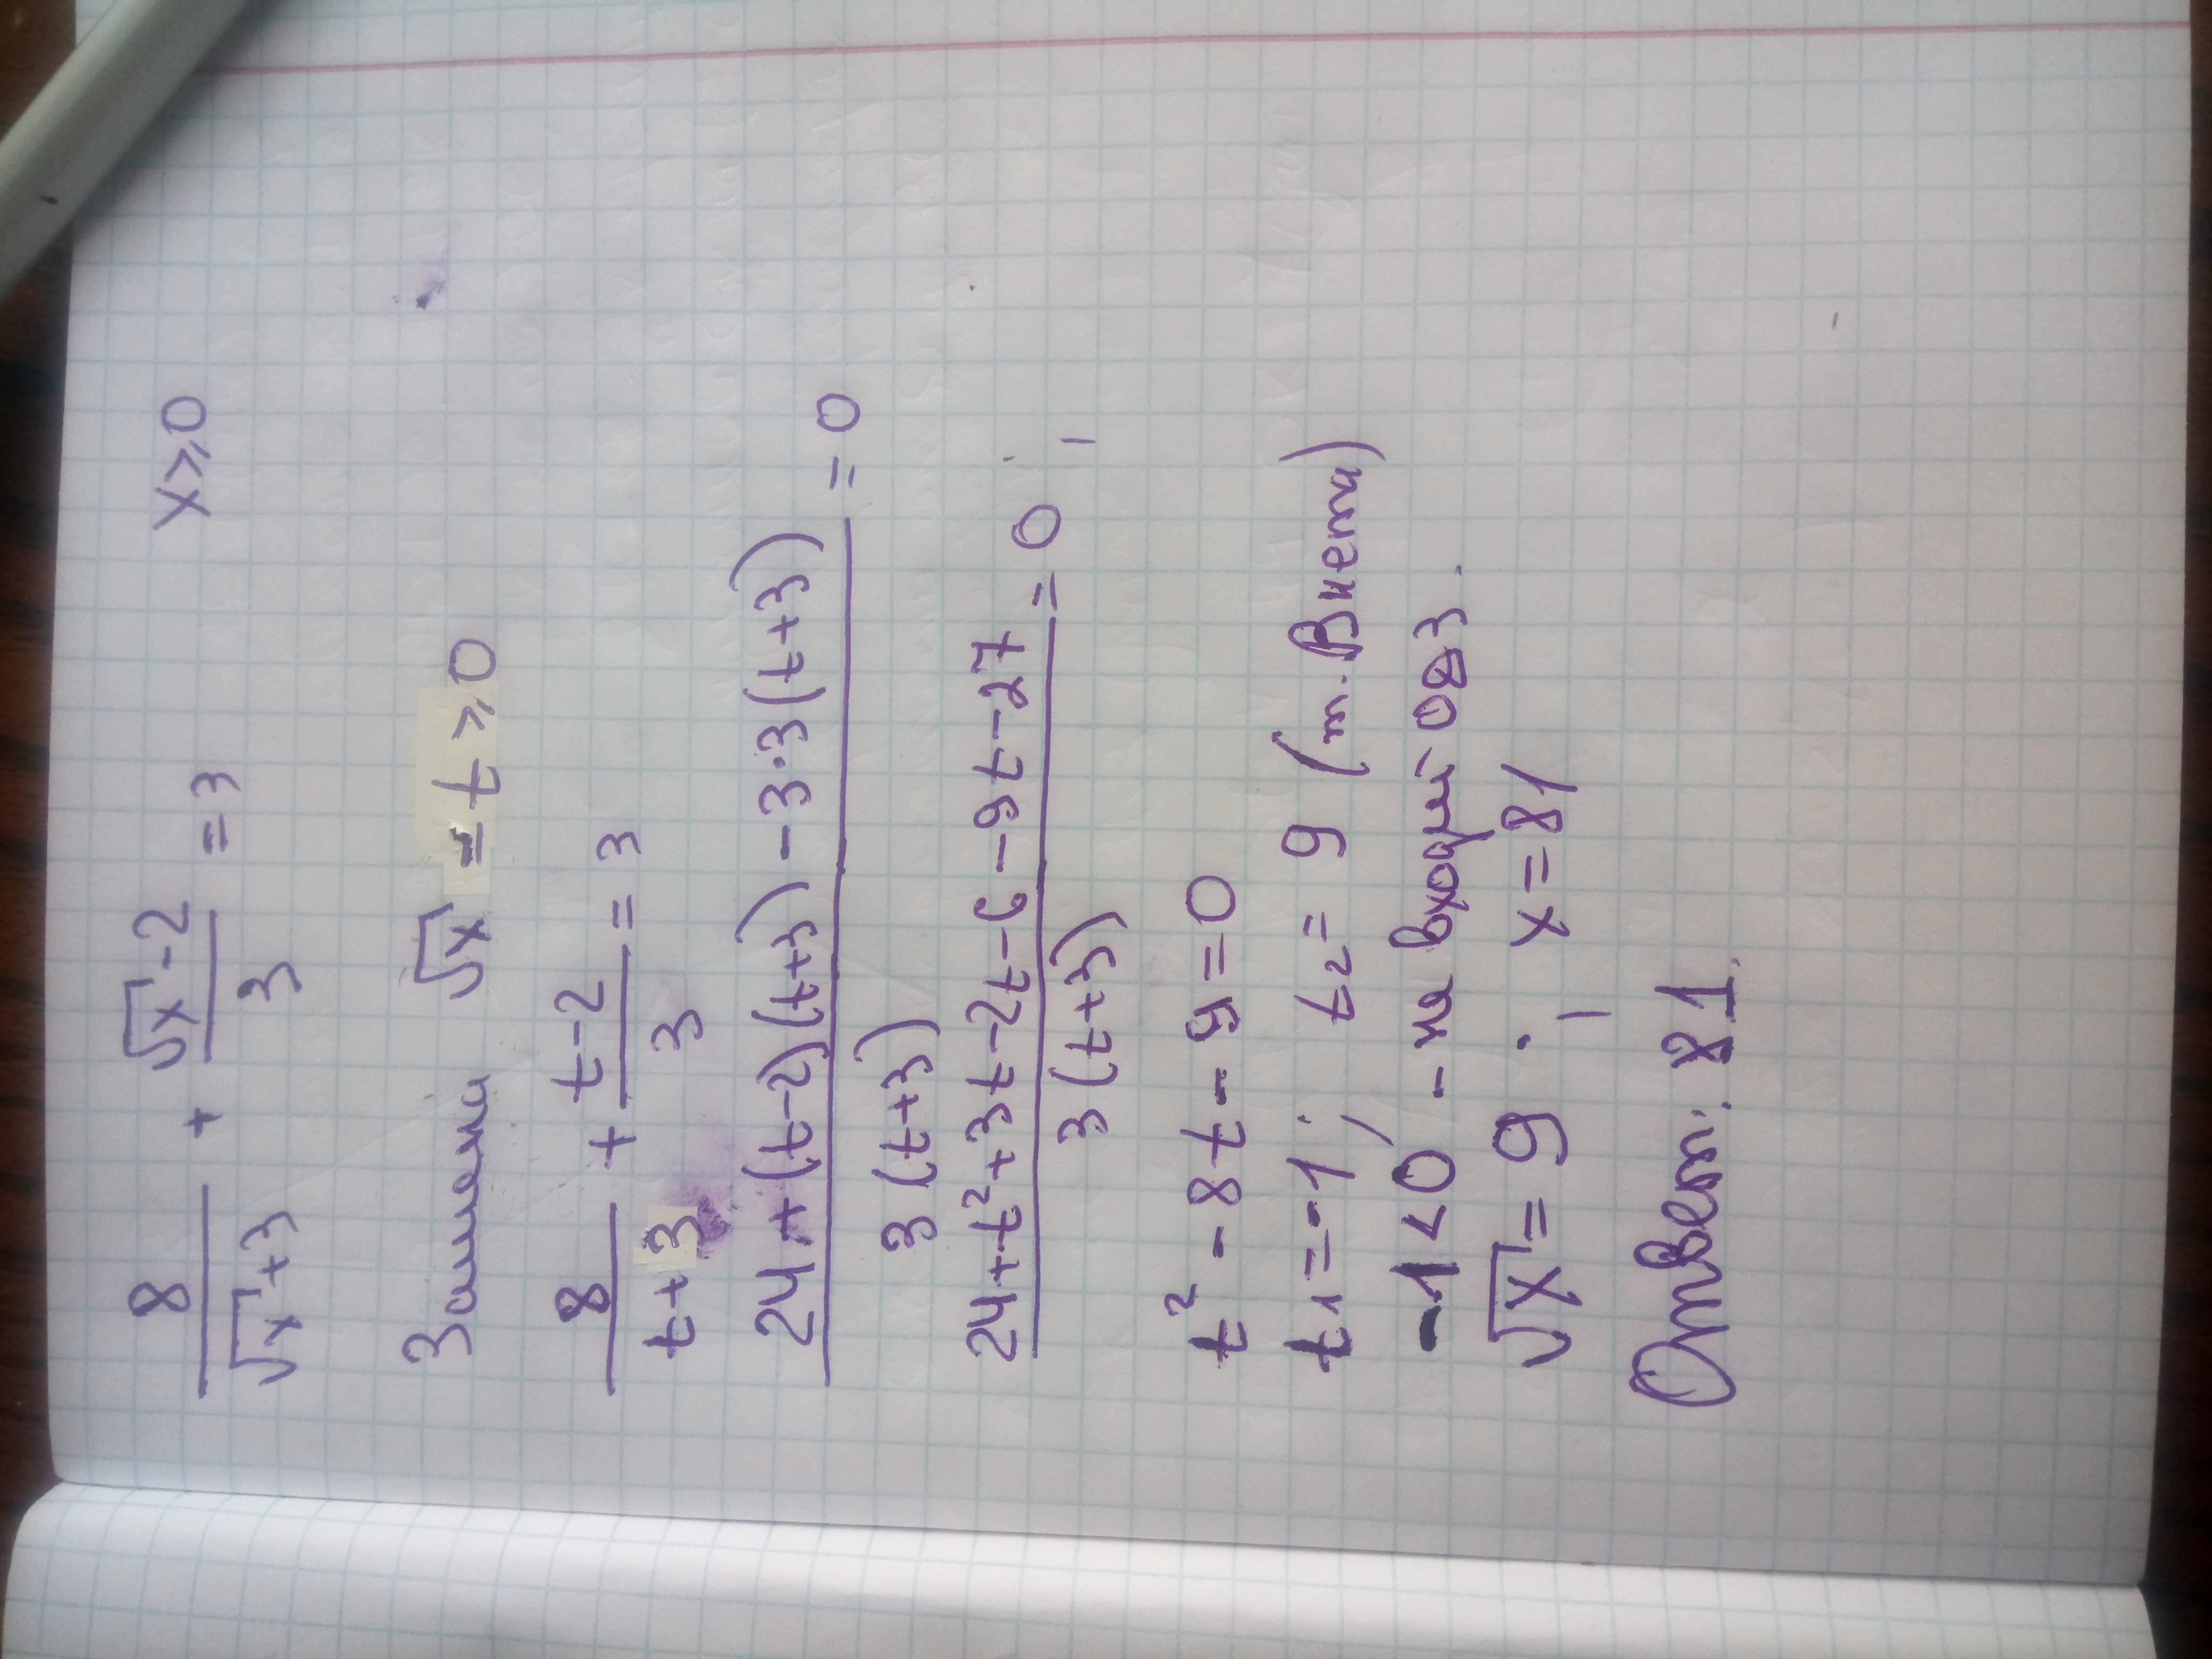 8/(√x+3) + (√x-2)/3 = 3 x≥0
Замена √x = t ≥0
8/(t+3) + (t-2)/3 = 3
(24+(t-2)(t+3)-3·3(t+3))/(3(t+3)) = 0
(24+t²+3t-2t-6-9t-27)/(3(t+3)) = 0
t²-8t-9=0
t₁=-1; t₂=9 (т. Виета)
-1<0 - не входит ОДЗ.
√x=9; x=81
Ответ: 81.